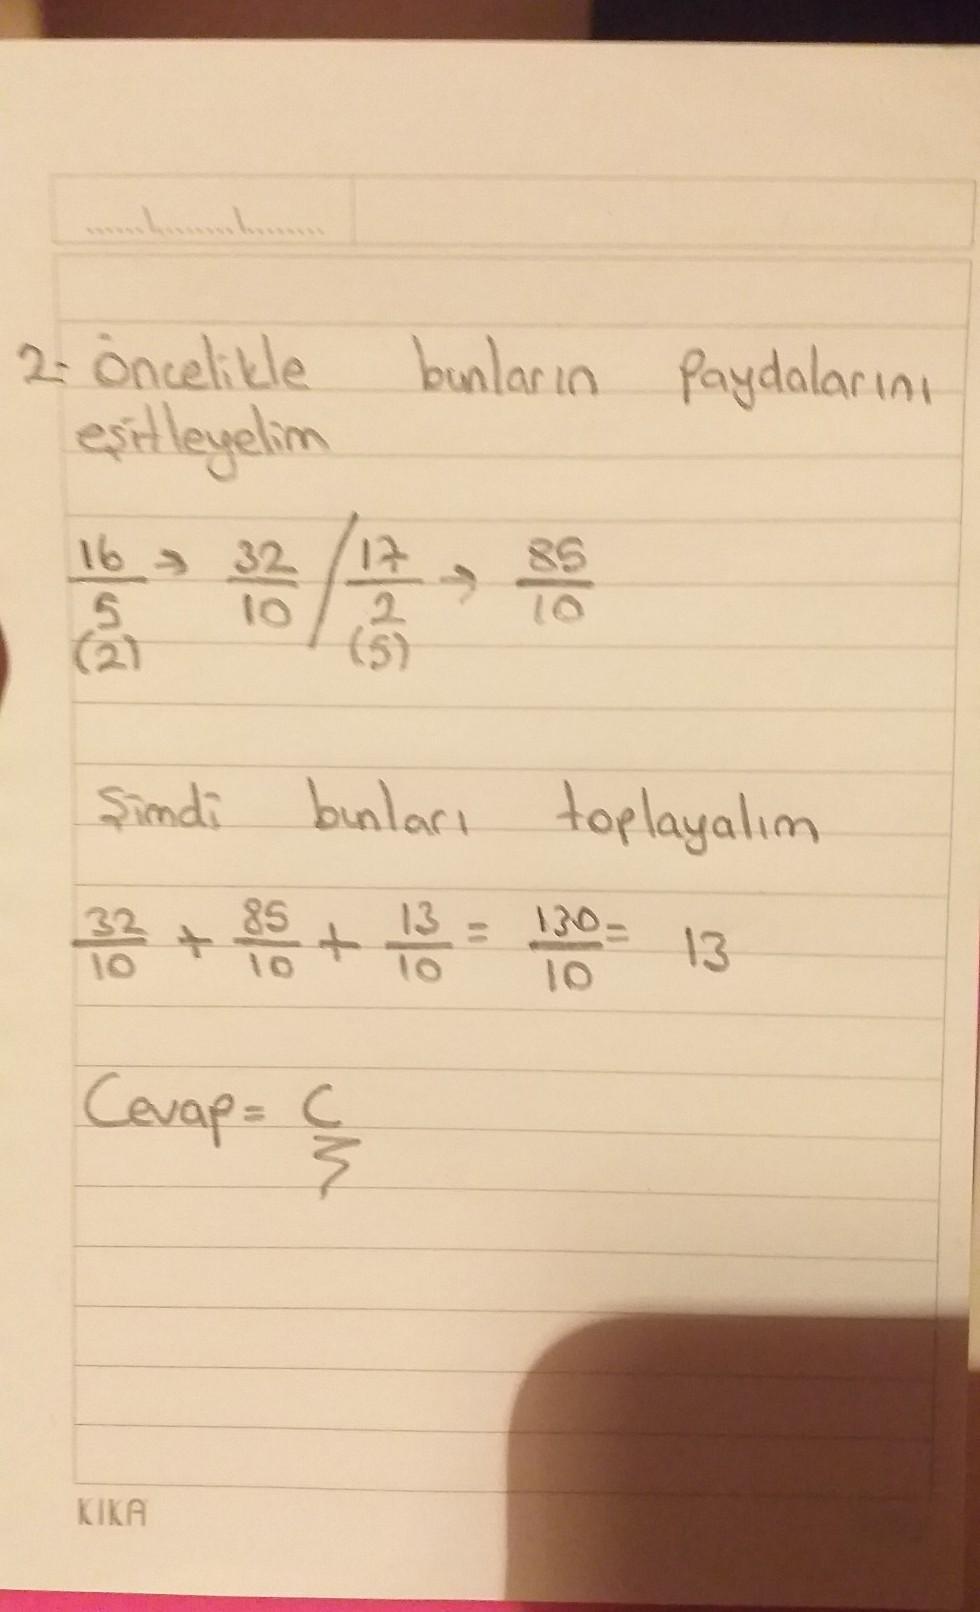 2- Öncelikle bunların Paydalarını
eşitleyelim
16/5 (2) → 32/10 / 17/2 (5) → 85/10
Şimdi bunları toplayalım
32/10 + 85/10 + 13/10 = 130/10 = 13
Cevap = C
KIKA